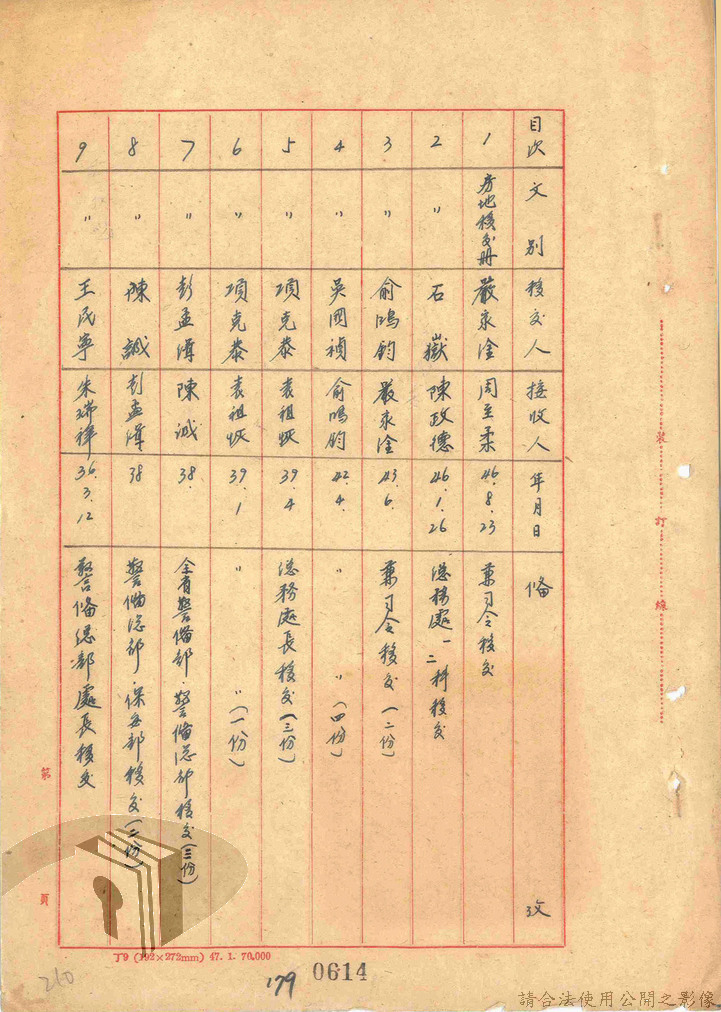 目次 文別 移交人 接收人 年月日 備攷
1 房地移交册 嚴家淦 周至柔 46.8.23 兼司令移交
2 〃 石嶽 陳政德 46.1.26 總務處一二科移交
3 〃 俞鴻鈞 嚴家淦 43.6. 兼司令移交(二份)
4 〃 吳國禎 俞鴻鈞 42.4. 〃 〃(四份)
5 〃 項克恭 袁祖恢 39.4 總務處長移交(三份)
6 〃 項克恭 袁祖恢 39.1 〃 〃(一份)
7 〃 彭孟淳 陳誠 38. 全省警備部.警備總部移交(三份)
8 〃 陳誠 彭孟淳 38 警備總部.保安部移交(二份)
9 〃 王民寧 朱瑞祥 36.3.12 警備總部處長移交
裝訂線
第 頁
丁9 (192×272mm) 47. 1. 70.000
210
179
0614
請合法使用公開之影像